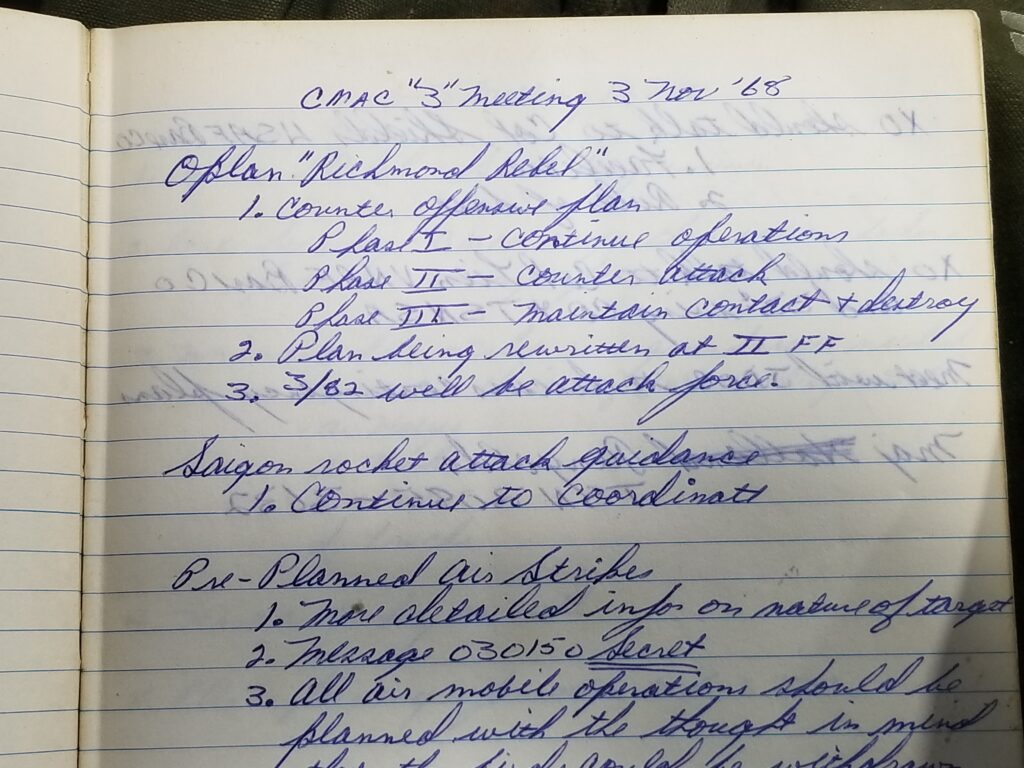 CMAC "3" Meeting 3 Nov '68
Oplan "Richmond Rebel"
1. Counter offensive plan
Phase I - continue operations
Phase II - counter attack
Phase III - Maintain contact + destroy
2. Plan being rewritten at II FF
3. 3/82 will be attack force.
Saigon rocket attack guidance
1. Continue to coordinate
Pre-Planned Air Strikes
1. More detailed info on nature of target
2. Message 030150 Secret
3. All air mobile operations should be
planned with the thought in mind
that the birds could be withdrawn